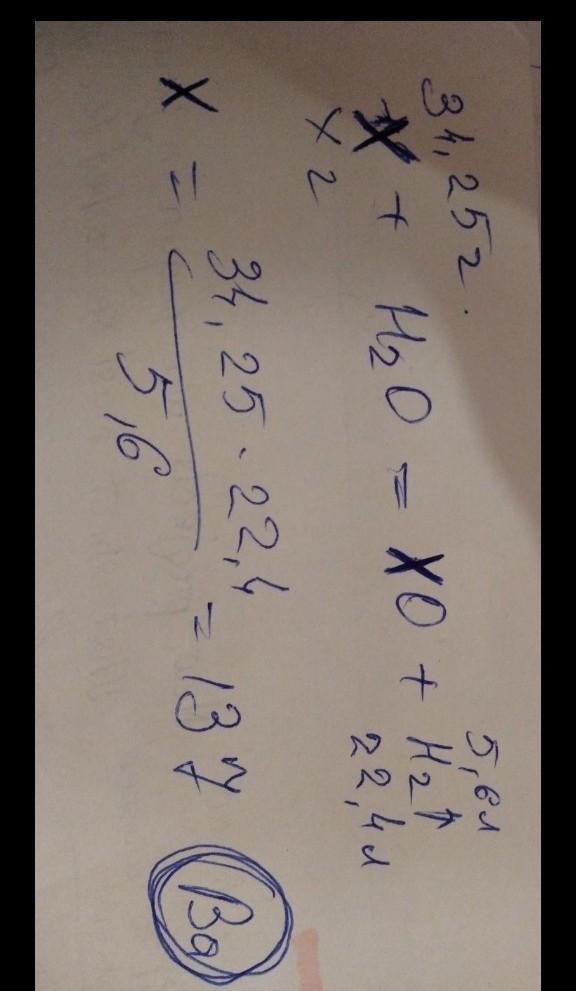 34,25г. 5,6л
X + H₂O = XO + H₂↑
x г 22,4л
X = 34,25 · 22,4 / 5,6 = 137 Ba